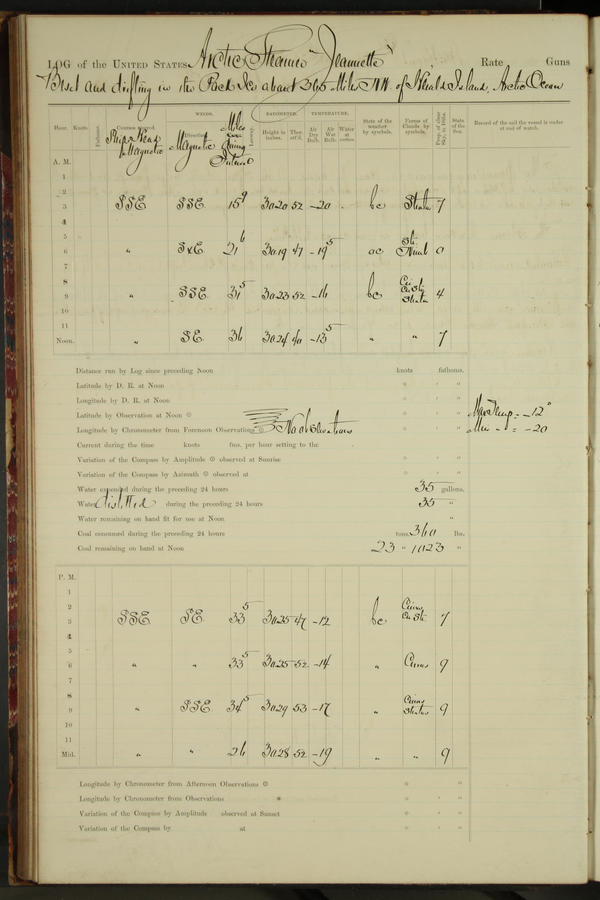 LOG of the UNITED STATES Arctic Steamer "Jeannette" Rate Guns
Beset and drifting in the Pack Ice about 365 Miles NW. of Herald Island, Arctic Ocean
WINDS. BAROMETER. TEMPERATURE.
Hour. Knots. Fathoms. Courses steered. Ship's Head Magnetic Direction. Magnetic Miles during Leeway. Height in inches. Ther. att'd. Air Dry Bulb. Air Wet Bulb. Water at surface. State of the weather by symbols. Forms of Clouds by symbols. Prop. of clear Sky, in 10ths. State of the Sea. Record of the sail the vessel is under at end of watch.
A. M.
1
2
3 SSE SSE 15⁹ 30.20 52 -20 bc Stratus 7
4
5
6 " SxE 21⁶ 30.19 47 -19⁵ oc Str. Nimb 0
7
8
9 " SSE 31⁵ 30.23 52 -16 bc Cir. Cir St. Stratus 4
10
11
Noon. " SE 36 30.24 40 -13⁵ " " 7
Distance run by Log since preceding Noon knots fathoms.
Latitude by D. R. at Noon ° ' "
Longitude by D. R. at Noon ° ' "
Latitude by Observation at Noon ⊙ ° ' " Max Temp = -12°
Longitude by Chronometer from Forenoon Observations ⊙ No observations ° ' " Min " = -20
Current during the time knots fms. per hour setting to the
Variation of the Compass by Amplitude ⊙ observed at Sunrise ° ' "
Variation of the Compass by Azimuth ⊙ observed at ° ' "
Water expended during the preceding 24 hours 35 gallons.
Water distilled during the preceding 24 hours 35 "
Water remaining on hand fit for use at Noon "
Coal consumed during the preceding 24 hours tons, 360 lbs.
Coal remaining on hand at Noon 23 " 1023 "
P. M.
1
2
3 SSE SE 33⁵ 30.25 47 -12 bc Cirrus Cir St. 7
4
5
6 " " 33⁵ 30.25 52 -14 " Cirrus 9
7
8
9 " SSE 34⁵ 30.29 53 -17 " Cirrus Stratus 9
10
11
Mid. " " 26 30.28 52 -19 " " 9
Longitude by Chronometer from Afternoon Observations ⊙ ° "
Longitude by Chronometer from Observations * ° ' "
Variation of the Compass by Amplitude observed at Sunset ° ' "
Variation of the Compass by at ° ' "